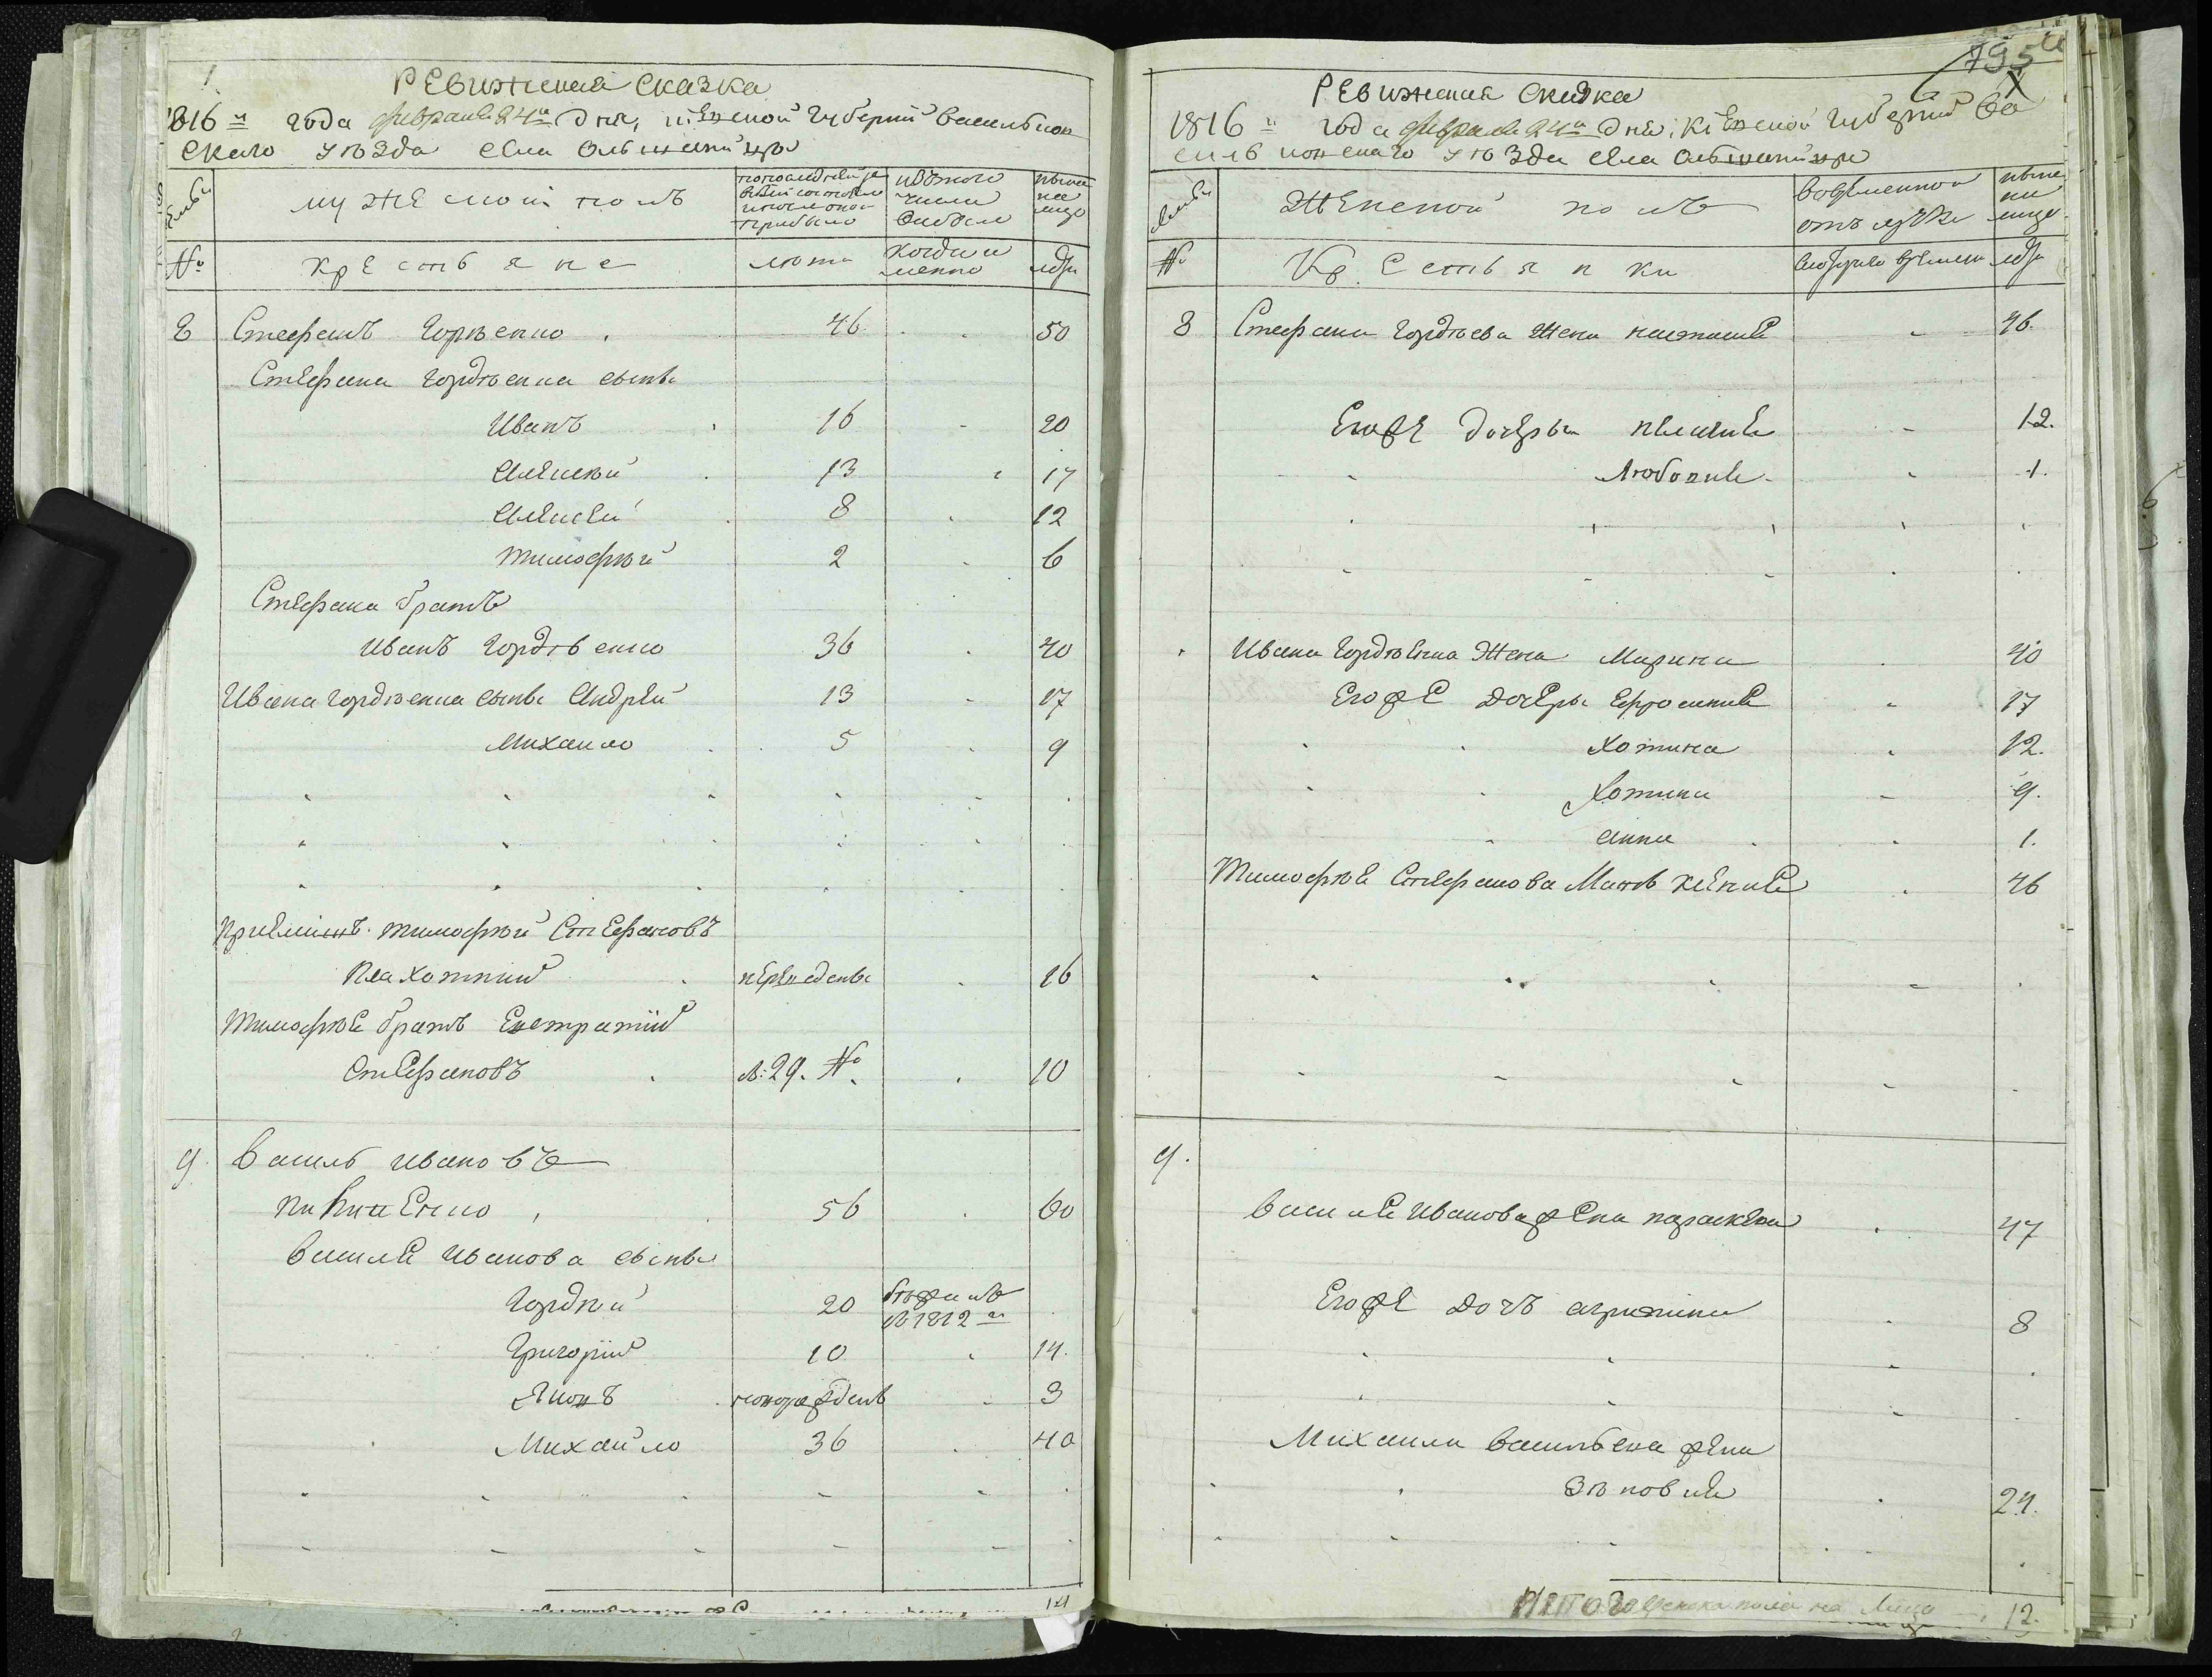 1.
Ревижская Сказка
1816го года февраля 24го дня, Кіевской Губерніи Васильков
скаго уѣзда села Ольшаницы
Семьи
мужеской полъ
по последней ре
визіи состояло
и после оной
прибыло
изъ того
числа
выбыло
ныне
на
лицо
№
крестьяне
лета
когда и
менно
лета
8 Стефанъ Гордѣенко 46 50
Стефана Гордѣенка сыны
Иванъ 16 20
Алексѣй 13 17
Алексей 8 12
Тимофѣй 2 6
Стефана братъ
Иванъ Гордѣенко 36 40
Ивана Гордѣенка сыны Андрей 13 17
Михайло 5 9
Приемышъ Тимофѣй Стефановъ
Плахотний переведены 16
Тимофѣя братъ Евстратій
Стефановъ 29. № 10
9. Василь Ивановъ
56 60
Василя Иванова сыны
Гордѣй 20 бѣжалъ
в 1812м
Григорій 10 14.
Яковъ новорожденъ 3
Михайло 36 40
14
795
Ревижская Сказка
1816го года февраля 24го дня, Кіевской Губерніи Ва
сильковскаго уѣзда села Ольшаницы
Семьи
Женской полъ
во временной
отълучке
ныне
на
лицо
№
Крестьянки
с котораго времени
лета
8 Стефана Гордѣева жена Настасия 46.
Его же дочеры Пелагия 12.
Любовия 1.
Ивана Гордѣенка Жена Марина 40
Его же дочеры Ефросиния 17
Хотина 12.
Хотина 9.
Анна 1.
Тимофѣя Стефанова Мать Ксения 46
9.
Василя Иванова жена Параскева 47
Его же дочь Агрипина 8
Михаила Васильева жена
Зѣновия 24.
Итого женска пола на лицо 12.